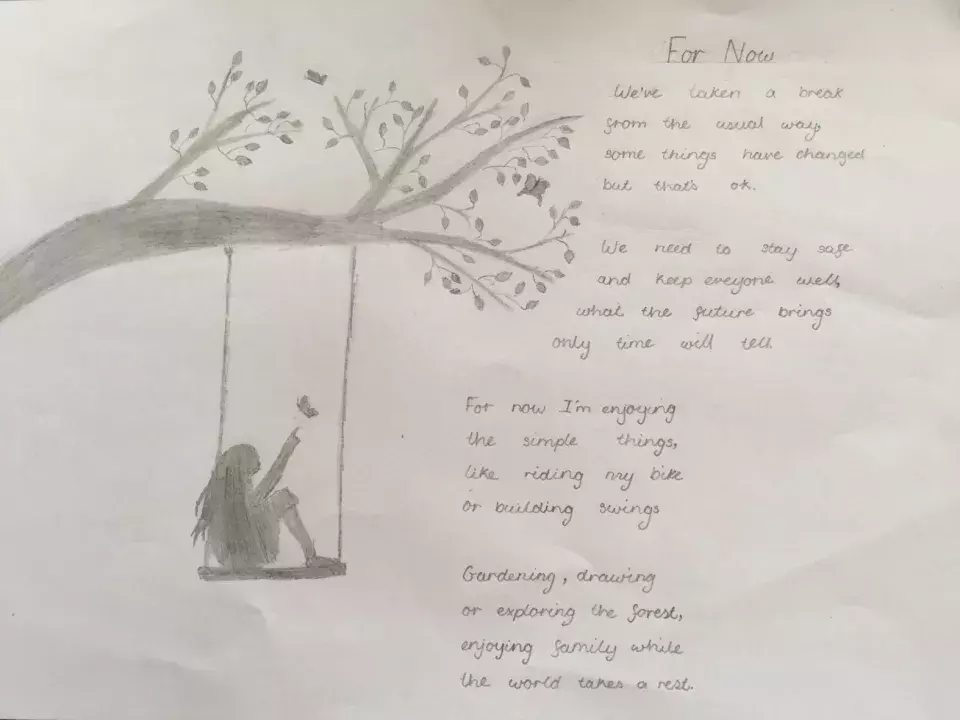 For Now
We've taken a break
from the usual way,
some things have changed
but that's ok.
We need to stay safe
and keep everyone well,
what the future brings
only time will tell.
For now I'm enjoying
the simple things,
like riding my bike
or building swings
Gardening, drawing
or exploring the forest,
enjoying family while
the world takes a rest.